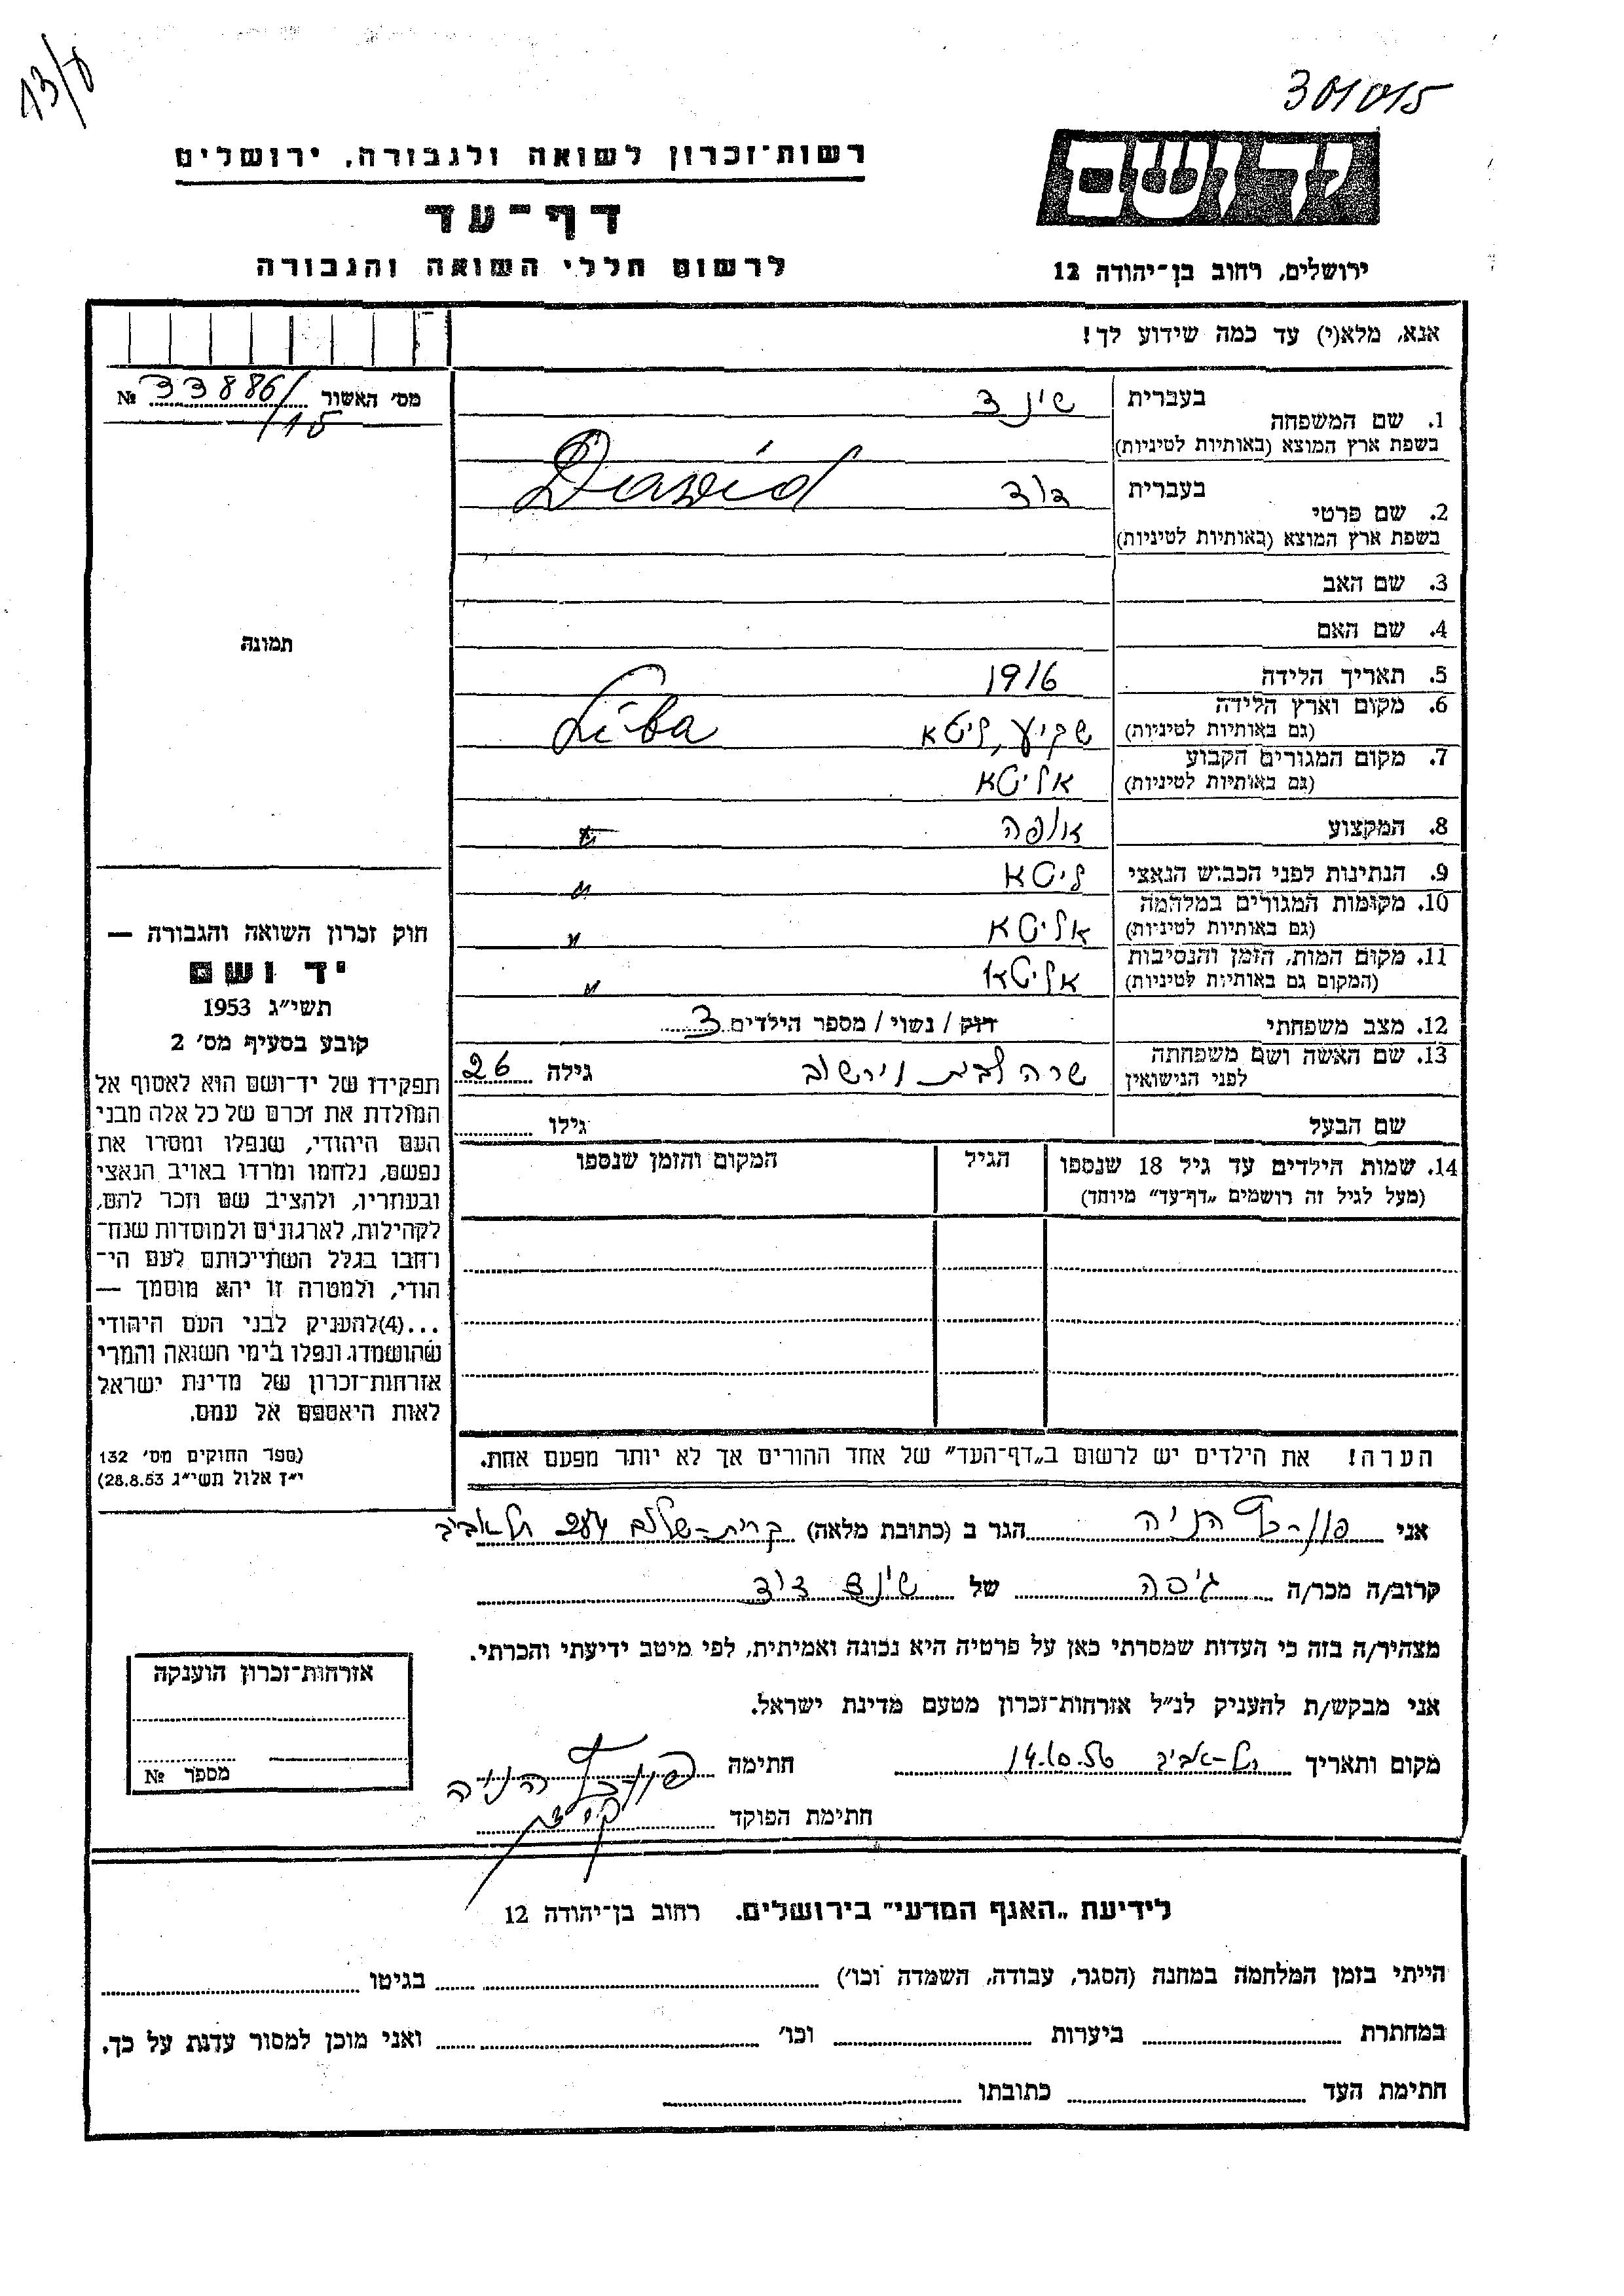 13/8
301015
יד ושם
רשות־זכרון לשואה ולגבורה, ירושלים
דף־עד
לרשום חללי השואה והגבורה
ירושלים, רחוב בן־יהודה 12
אנא, מלא(י) עד כמה שידוע לך!
מס׳ האשור 33886/ №
/15
בעברית
1. שם המשפחה
בשפת ארץ המוצא (באותיות לטיניות)
בעברית דוד Dawid
2. שם פרטי
בשפת ארץ המוצא (באותיות לטיניות)
3. שם האב
4. שם האם
תמונה
5. תאריך הלידה 1916
6. מקום וארץ הלידה ליטא
(גם באותיות לטיניות)
7. מקום המגורים הקבוע אליטא
(גם באותיות לטיניות)
8. המקצוע אופה
9. הנתינות לפני הכבוש הנאצי ליטא
10. מקומות המגורים במלחמה אליטא
(גם באותיות לטיניות)
11. מקום המות, הזמן והנסיבות אליטא
(המקום גם באותיות לטיניות)
12. מצב משפחתי רוק / נשוי / מספר הילדים 3
13. שם האשה ושם משפחתה שרה לבית גילה 26
לפני הנישואין
שם הבעל גילו
14. שמות הילדים עד גיל 18 שנספו הגיל המקום והזמן שנספו
(מעל לגיל זה רושמים „דף־עד" מיוחד)
הערה! את הילדים יש לרשום ב„דף־העד" של אחד ההורים אך לא יותר מפעם אחת.
חוק זכרון השואה והגבורה —
יד ושם
תשי״ג 1953
קובע בסעיף מס׳ 2
תפקידו של יד־ושם הוא לאסוף אל
המולדת את זכרם של כל אלה מבני
העם היהודי, שנפלו ומסרו את
נפשם, נלחמו ומרדו באויב הנאצי
ובעוזריו, ולהציב שם וזכר להם,
לקהילות, לארגונים ולמוסדות שנח־
רחבו בגלל השתייכותם לעם הי־
הודי, ולמטרה זו יהא מוסמך —
...(4)להעניק לבני העם היהודי
שהושמדו ונפלו בימי השואה והמרי
אזרחות־זכרון של מדינת ישראל
לאות היאספם אל עמם.
(ספר החוקים מס׳ 132
י״ז אלול תשי״ג 28.8.53)
אני הגר ב (כתובת מלאה) קרית-שלום תל אביב
קרוב/ה מכר/ה גיסה של דוד
מצהיר/ה בזה כי העדות שמסרתי כאן על פרטיה היא נכונה ואמיתית, לפי מיטב ידיעתי והכרתי.
אני מבקש/ת להעניק לנ״ל אזרחות־זכרון מטעם מדינת ישראל.
מקום ותאריך תל-אביב 14.10.56 חתימה
חתימת הפוקד
אזרחות־זכרון הוענקה
מספר №
לידיעת „האגף המדעי" בירושלים. רחוב בן־יהודה 12
הייתי בזמן המלחמה במחנה (הסגר, עבודה, השמדה וכו׳) בגיטו
במחתרת ביערות וכו׳ ואני מוכן למסור עדות על כך.
חתימת העד כתובתו